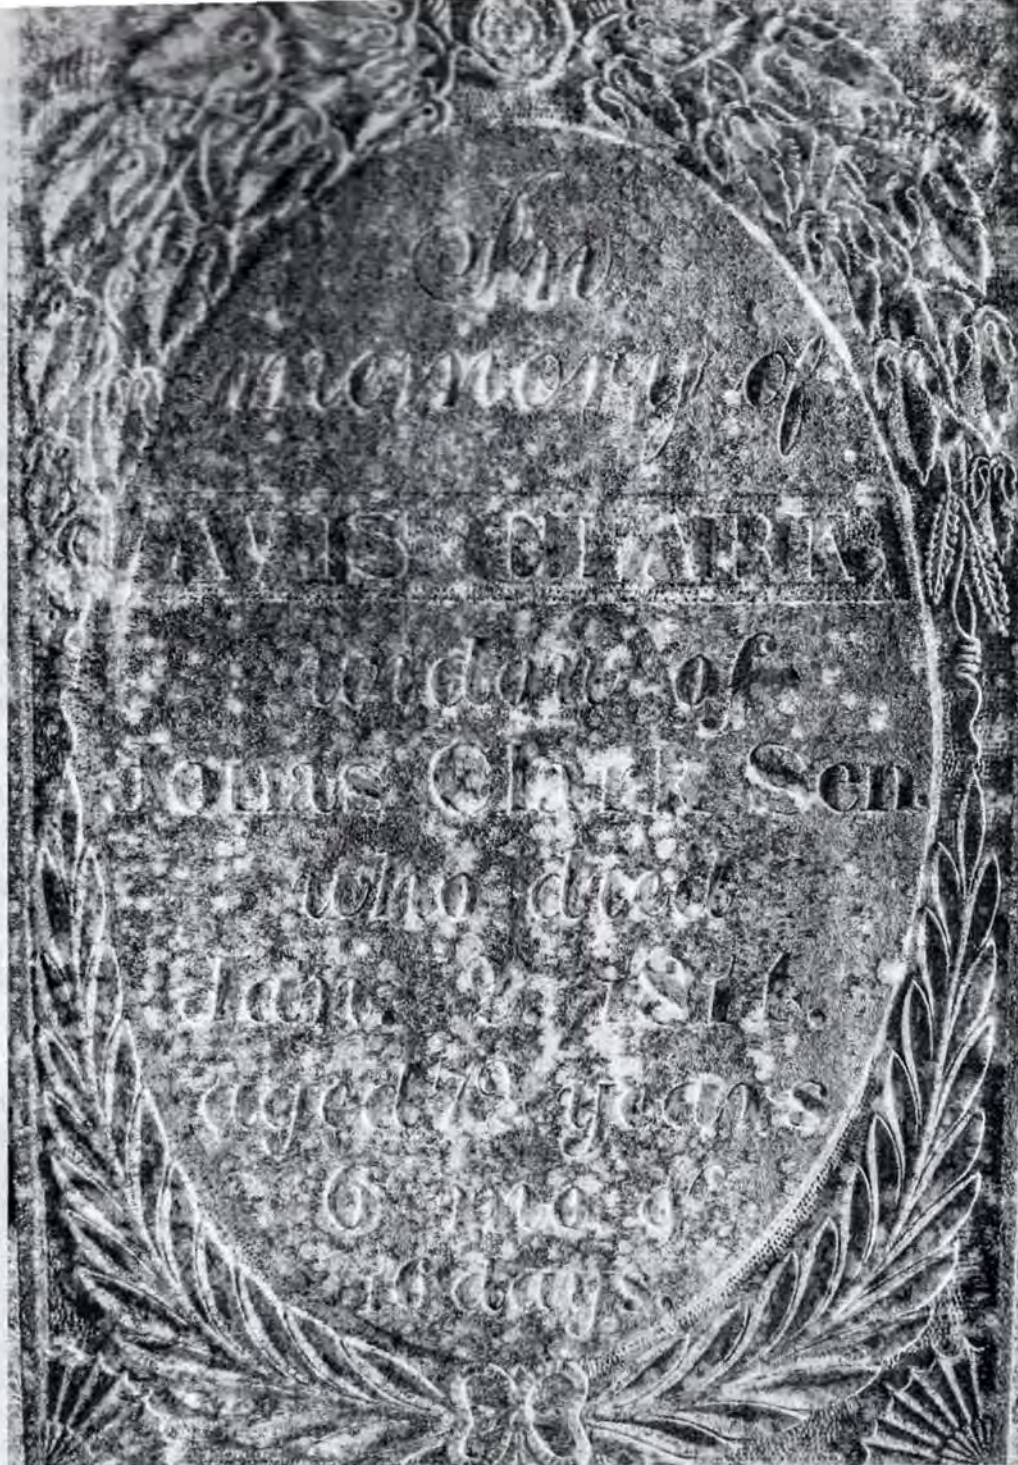 In
memory of
AVIS CLARK,
widow of
Jonas Clark Sen.
who died
Jan.
aged years
6 mo. &
16 days.